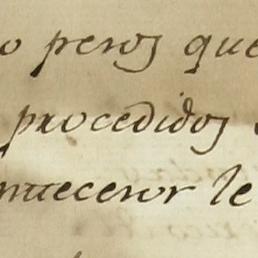 o pesos que
procedidos
antecesor le